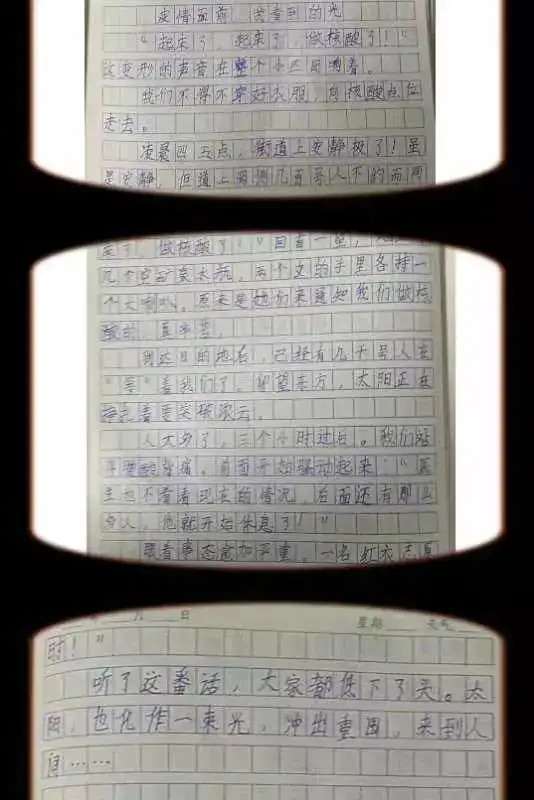 疫情面前，我看到的光
“起来了，起来了，做核酸了！”
这变形的声音在整个小区回响着。
我们不得不穿好衣服，向核酸点位
走去。
凌晨四五点，街道上安静极了！虽
是安静，但道上
，做核酸了！”回首一望，
几个 两个 的手里各持一
个大喇叭。原来是她们来通知我们做核
酸的，真辛苦。
到达目的地后，已经有几千号人在
“等”着我们了。仰望东方，太阳正在
着要突破浓云。
人太多了，三个小时过后。我们站
得腰酸 痛，前面开始骚动起来：“医
生也不看看现在的情况，后面还有那么
多人，他就开始休息了！”
眼看事态愈加严重。一名红衣志愿
月 日 星期 天气
时！”
听了这番话，大家都低下了头。太
阳，也化作一束光，冲出重围，来到人
间……